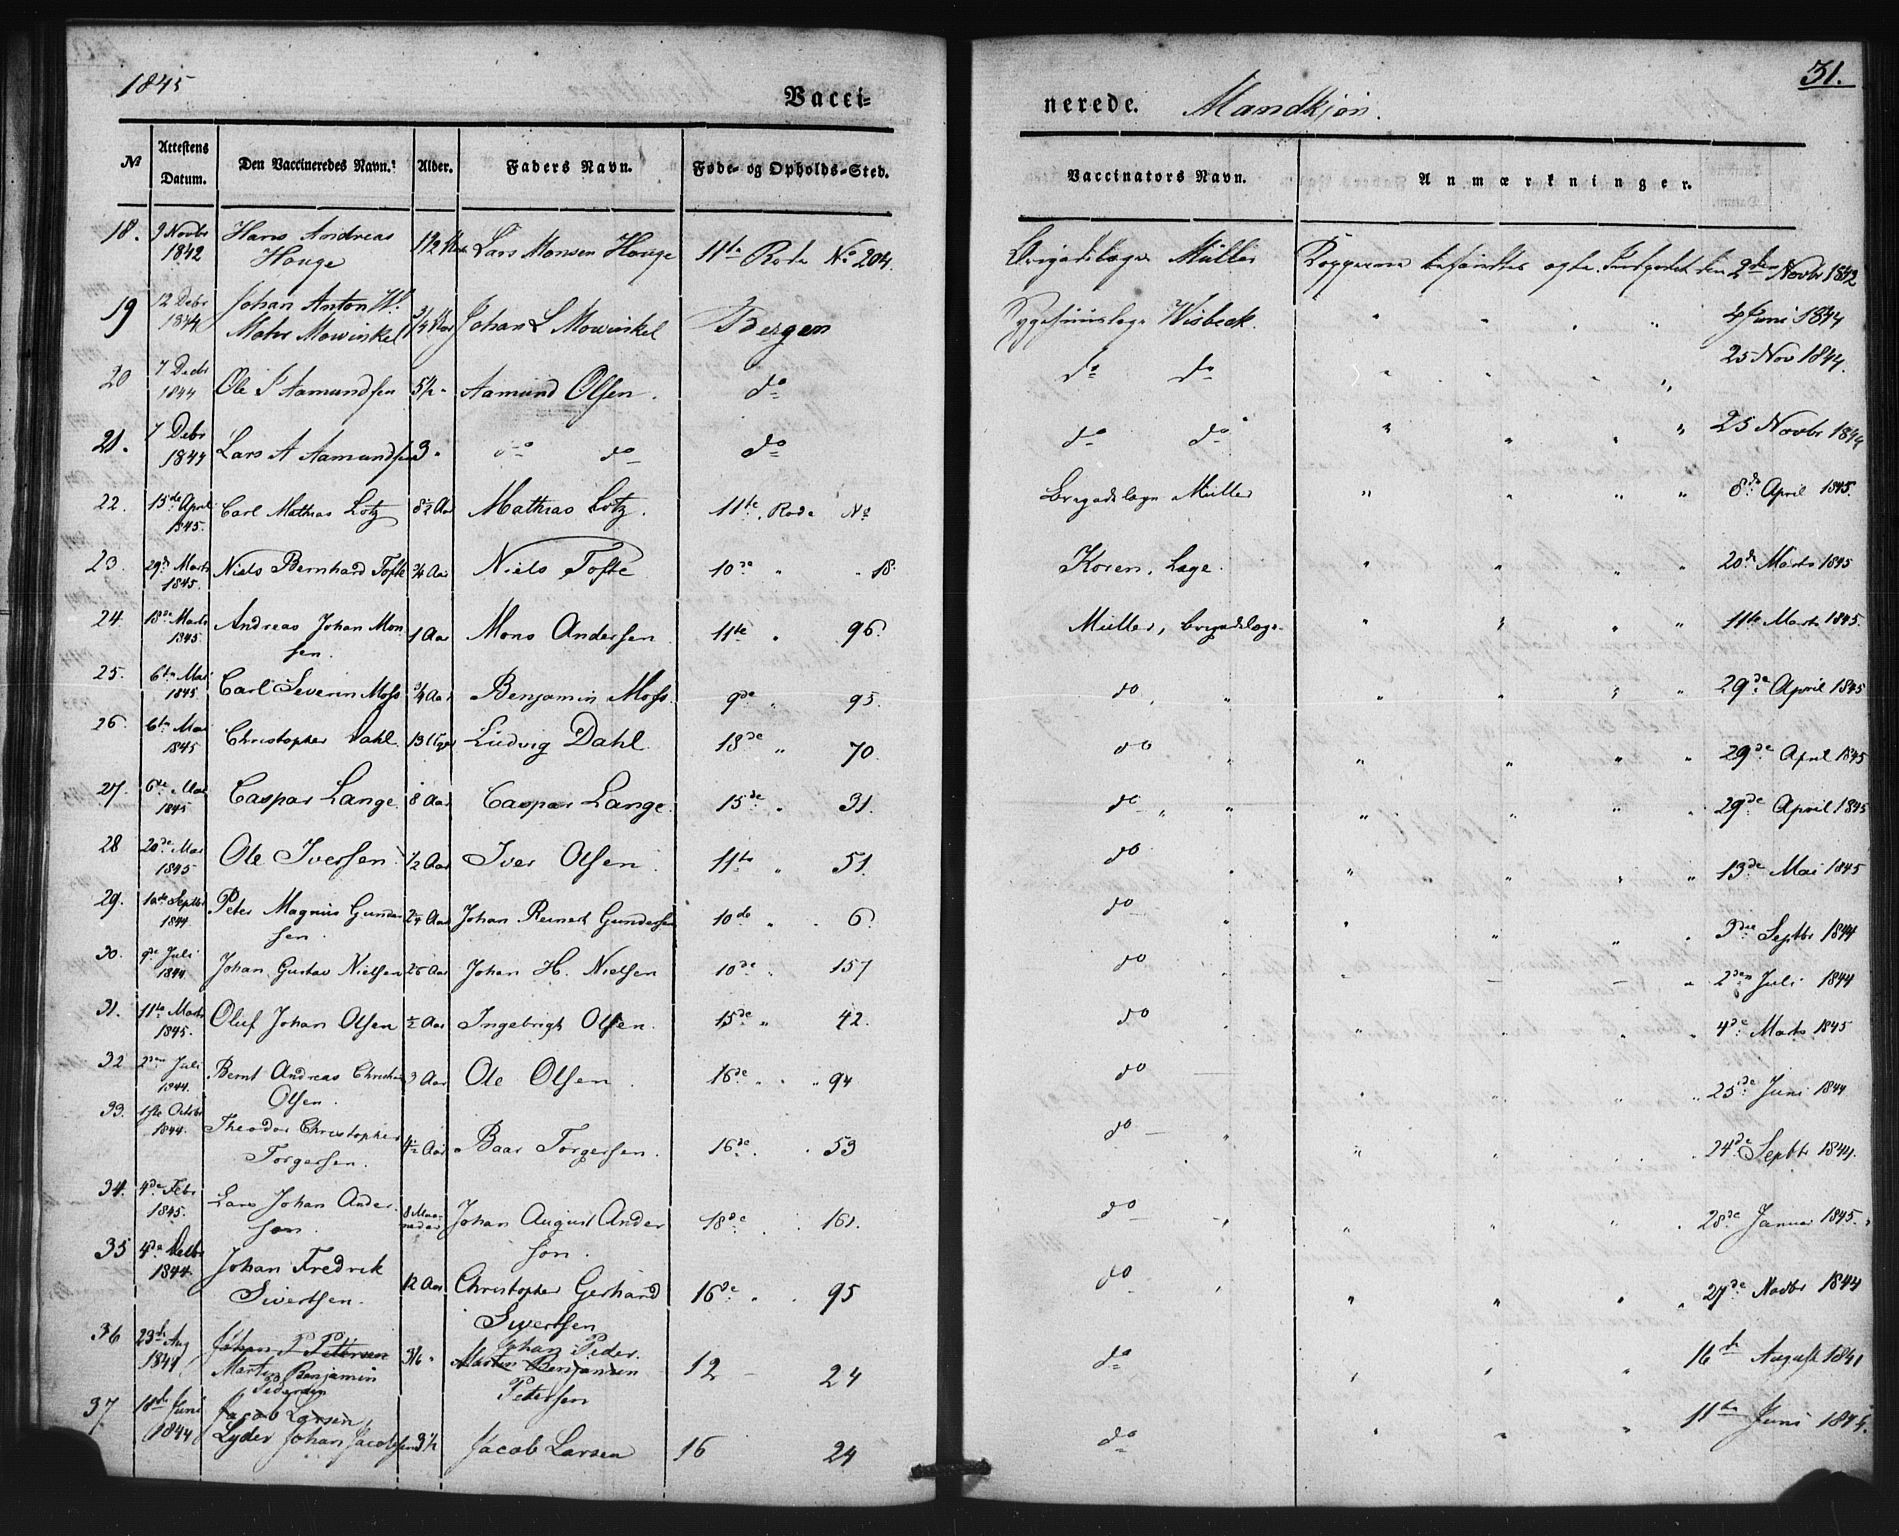 1845
Vacci-
nerede. Mandkjøn.
31.
№ Attestens Datum. Den Vaccineredes Navn. Alder. Faders Navn. Føde- og Opholds-Sted. Vaccinators Navn. Anmærkninger.
18. 9 Novbr 1842 Hans Andreas Houge 1 1/2 Lars Monsen Houge 11te Rode No 204. Brigadelæge Müller Kopperne befandtes ægte. 2den Novbr 1842
19 12 Debr 1844 Johan Anton W. Mohr Mowinkel Johan L Mowinkel Bergen Wisbeck. " " " " 4 Juni 1844
20 7 Decbr 1844 Ole S Aamundsen 5 1/2 " Aamund Olsen. do do do " " " " 25 Nov 1844.
21. 7 Debr 1844 Lars A Aamundsen 3 " do do do do do " " " " 25 Novbr 1844
22. 15de April 1845. Carl Mathias Lotz 8 1/2 Aar Mathias Lotz. 11te Rode No Brigadelæge Müller " " " " 8de April 1845.
23. 29de Marts 1845. Niels Bernhard Tofte 3/4 Aar Niels Tofte 10de " " 18 Koren, Læge. " " " " 20de Marts 1845
24. 18de Marts 1845. Andreas Johan Monsen. 1 Aar Mons Andersen. 11te " 96. Müller, brigadelæge. " " " " 11te Marts 1845.
25. 6te Mai 1845 Carl Severin Moss 3/4 Aar Benjamin Moss. 9de " 95. do " " " " " 29de April 1845
26. 6te Mai 1845 Christopher Dahl. 13 Uger Ludvig Dahl 18de " 70. do " " " " " 29de April 1845
27. 6te Mai 1845 Caspar Lange 8 Aar Caspar Lange. 15de " 31. do " " " " " " 29de April 1845
28 20de Mai 1845 Ole Iversen 1/2 Aar Iver Olsen. 11te " 51. do " " " " " 13de Mai 1845
29. 10de Septbr 1844. Peter Magnus Gundersen. 2 1/4 Aar Johan Reinert Gundersen 10de " " 6. do " " " " " 3die Septbr 1844
30. 9de Juli 1844. Johan Gustav Nielsen Aar Johan H. Nielsen 10de " 157 do " " " " " 2den Juli 1844
31. 11te Marts 1845. Oluf Johan Olsen 1/2 Aar Ingebrigt Olsen. 15de " 42. do " " " " " 4de Marts 1845
32 2den Juli 1844. Bernt Andreas Christian Olsen. 3 Aar Ole Olsen. 16de " " " 94 do " " " " 25de Juni 1844
33. 1ste Octobr 1844. Theodor Christopher Torgersen. 4 1/2 Aar Baar Torgersen. 16de " " 53 do " " " " " 24de Septbr 1844.
34. 4de Febr 1845. Lars Johan Anderson. 8 Maaneder Johan August Anderson. 18de " 161. do " " " " " 28de Januar 1845.
35 4de Decbr 1844 Johan Fredrik Sivertsen. 12 Aar Christopher Gerhard Sivertsen 16de " " 95 do " " " " " 27de Novbr 1844
36 23de Aug 1841, Johan P Petersen Martin Benjamin Pedersen 3/6 " Martin Benjamin Johan Peder Petersen 12 - 24 do " " " 16de August 1841
37 18de Juni 1844 Jacob Larsen, Lyder Johan Jacobsen 3 1/2 Jacob Larsen 16 24 do " " " 11te Juni 1844.